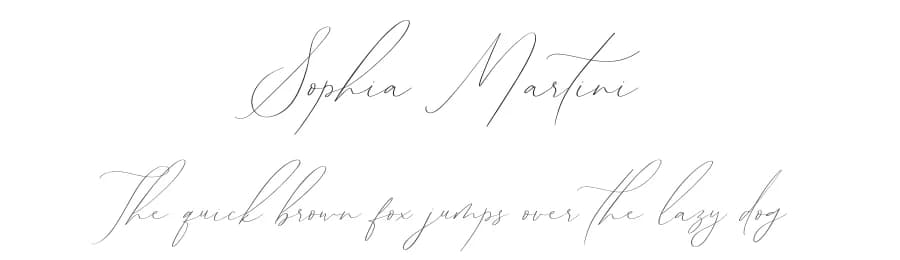 Sophia Martini
The quick brown fox jumps over the lazy dog